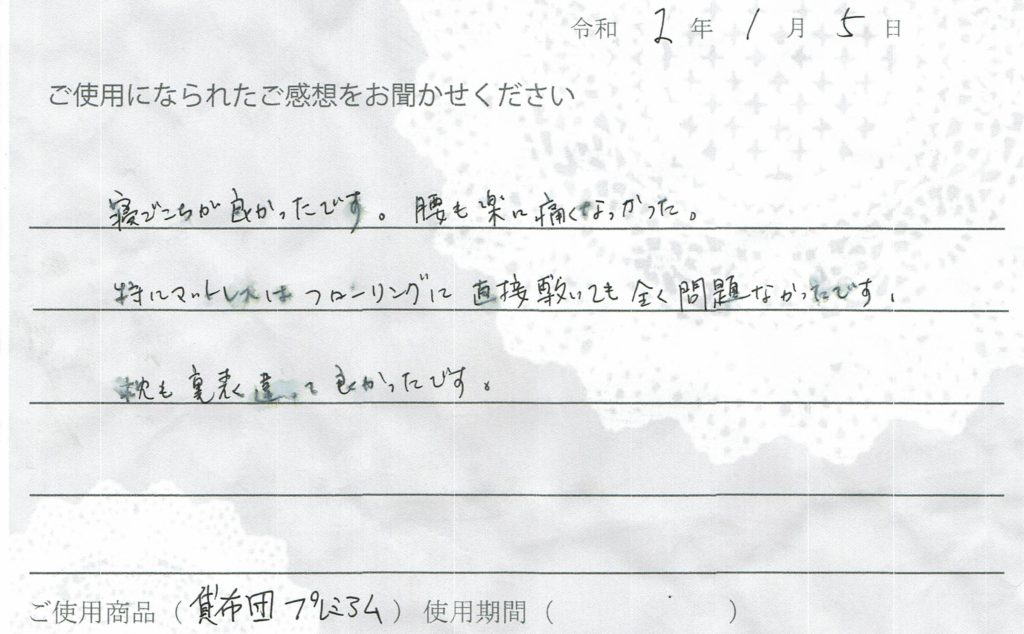 令和 2 年 1 月 5 日
ご使用になられたご感想をお聞かせください
寝ごこちが良かったです。腰も楽に痛くなかった。
特にマットレスは フローリングに 直接敷いても 全く問題なかったです。
枕も裏表違って良かったです。
ご使用商品（貸布団プレミアム）使用期間（ ）